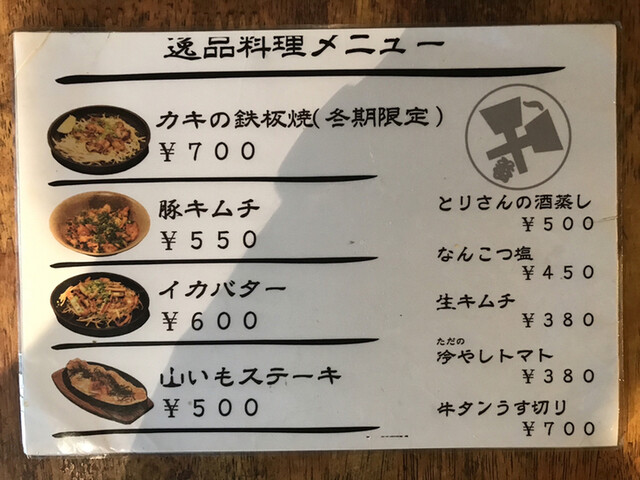 逸品料理メニュー
カキの鉄板焼(冬期限定)
￥７００
豚キムチ
￥５５０
イカバター
￥６００
山いもステーキ
￥５００
とりさんの酒蒸し
￥５００
なんこつ塩
￥４５０
生キムチ
￥３８０
ただの
冷やしトマト
￥３８０
牛タンうす切り
￥７００